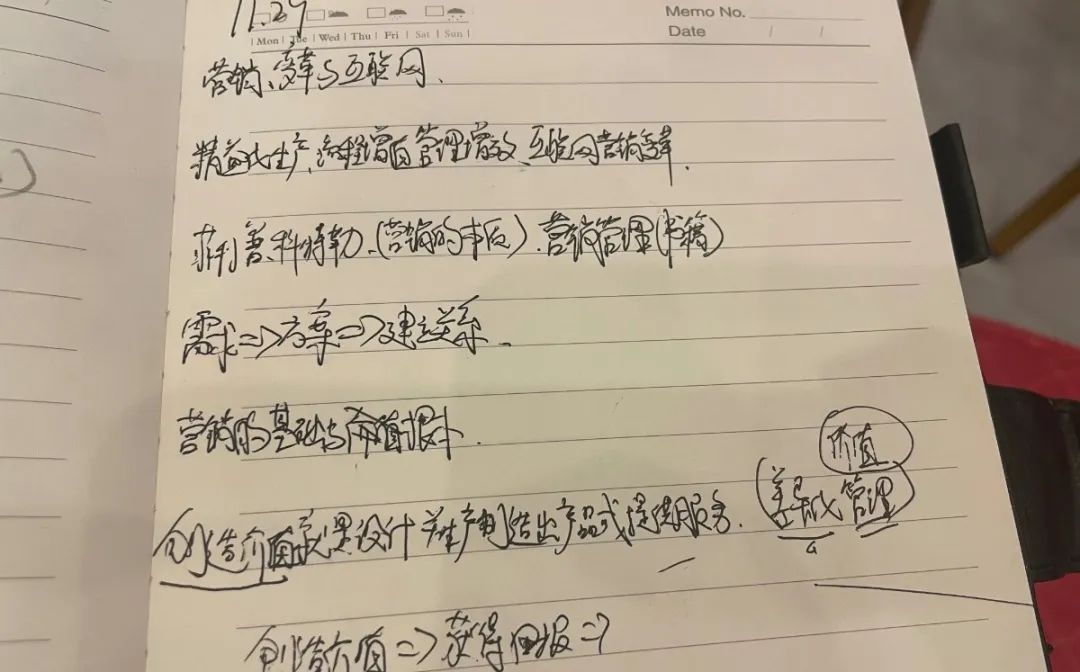 11.29
Memo No.
Mon Tue Wed Thu Fri Sat Sun
Date / /
营销、变革与互联网、
精益化生产、流程增值管理增效、互联网营销变革.
菲利普·科特勒、(营销的本质)、营销管理(书籍)
需求=>方案=>建立关系.
营销的基础与价值根本.
价值
创造价值就是设计并生产制造出产品或提供服务. (差异化管理)
创造价值=>获得回报=>